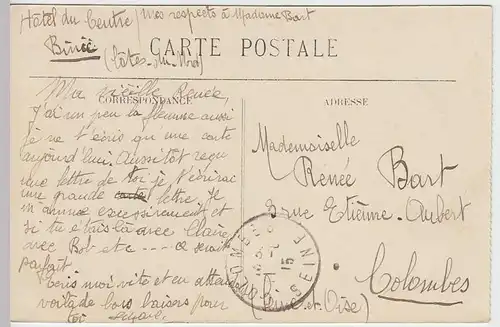 Hôtel du Centre / mes respects à Madame Bart
Binic
CARTE POSTALE
(Côtes-du-Nord)
CORRESPONDANCE
ADRESSE
Ma vieille Renée,
J'ai un peu la flemme aussi
je ne t'écris qu'une carte
aujourd'hui. Aussitôt reçu
une lettre de toi je t'écrirai
une grande carte lettre. Je
m'amuse excessivement et
si tu étais là avec Claire
avec Bob etc ---- ce serait
parfait
Ecris moi vite et en attendant
voilà de bons baisers pour
toi
Mademoiselle
Renée Bart
8 rue Etienne-Aubert
Colombes
(Seine-et-Oise)
15
SEINE